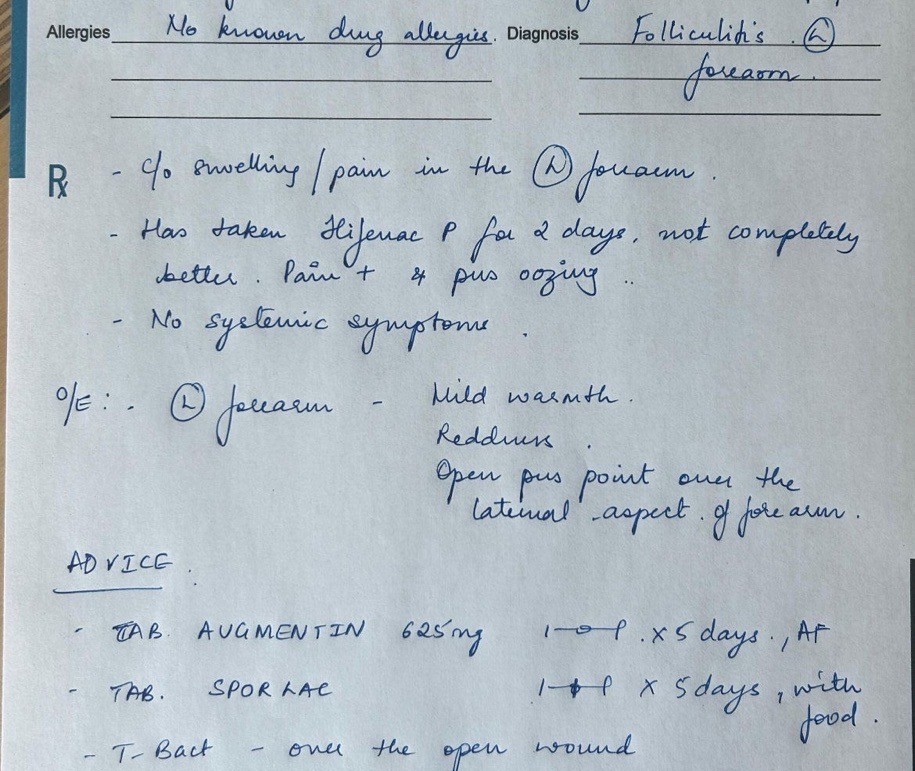 Allergies No known drug allergies. Diagnosis Folliculitis. Ⓛ
forearm.
Rx - c/o swelling / pain in the Ⓛ forearm.
- Has taken Hifenac P for 2 days, not completely
better. Pain + & pus oozing ..
- No systemic symptoms.
O/E: - Ⓛ forearm - Mild warmth.
Redness.
Open pus point over the
lateral aspect of forearm.
ADVICE.
- TAB. AUGMENTIN 625mg 1-0-1 x 5 days., AF
- TAB. SPORLAC x 5 days, with
food.
- T-Bact - over the open wound